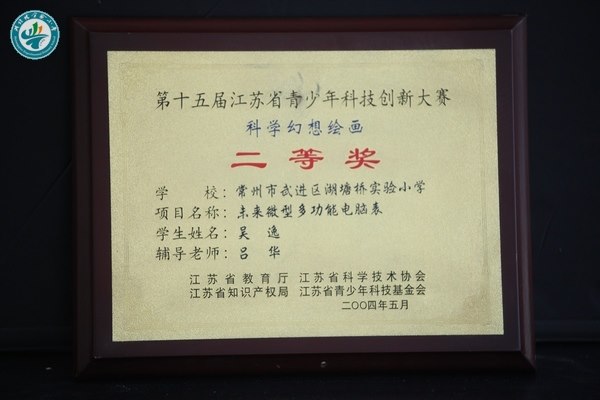 第十五届江苏省青少年科技创新大赛
科学幻想绘画
二等奖
学 校：常州市武进区湖塘桥实验小学
项目名称：未来微型多功能电脑表
学生姓名：吴逸
辅导老师：吕华
江苏省教育厅 江苏省科学技术协会
江苏省知识产权局 江苏省青少年科技基金会
二〇〇四年五月